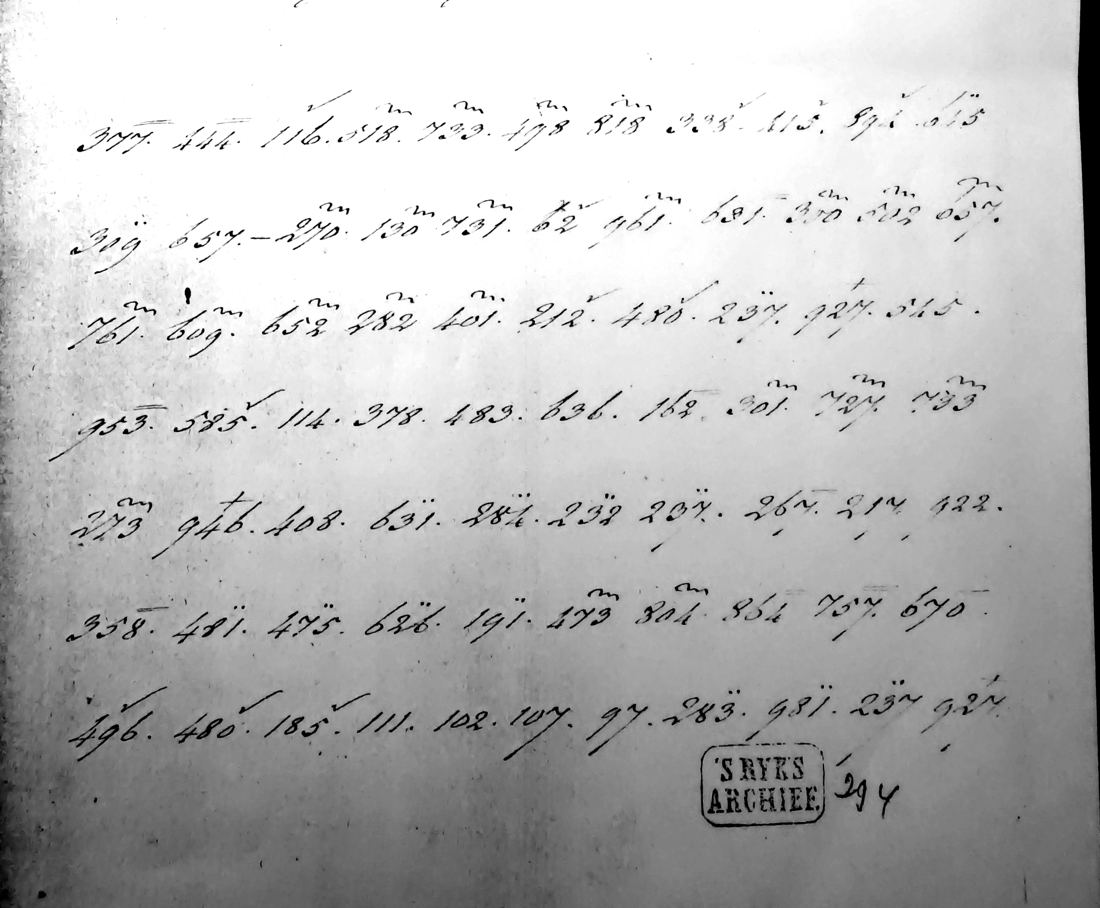 377. 444. 116. 518. 733. 498 818 338. 415. 894 615
309 657. - 270. 130 731. 62 961. 681. 370 502 657.
761. 609. 652 282 401. 212. 480. 237. 927. 545.
953. 585. 114. 378. 483. 636. 162. 301. 727. 733
273 946. 408. 631. 284. 232 237. 267. 217. 922.
358. 481. 475. 626. 191. 473 804. 864 757. 670.
496. 480. 185. 111. 102. 107. 97. 283. 981. 237 927.
'S RYKS
ARCHIEF. 294